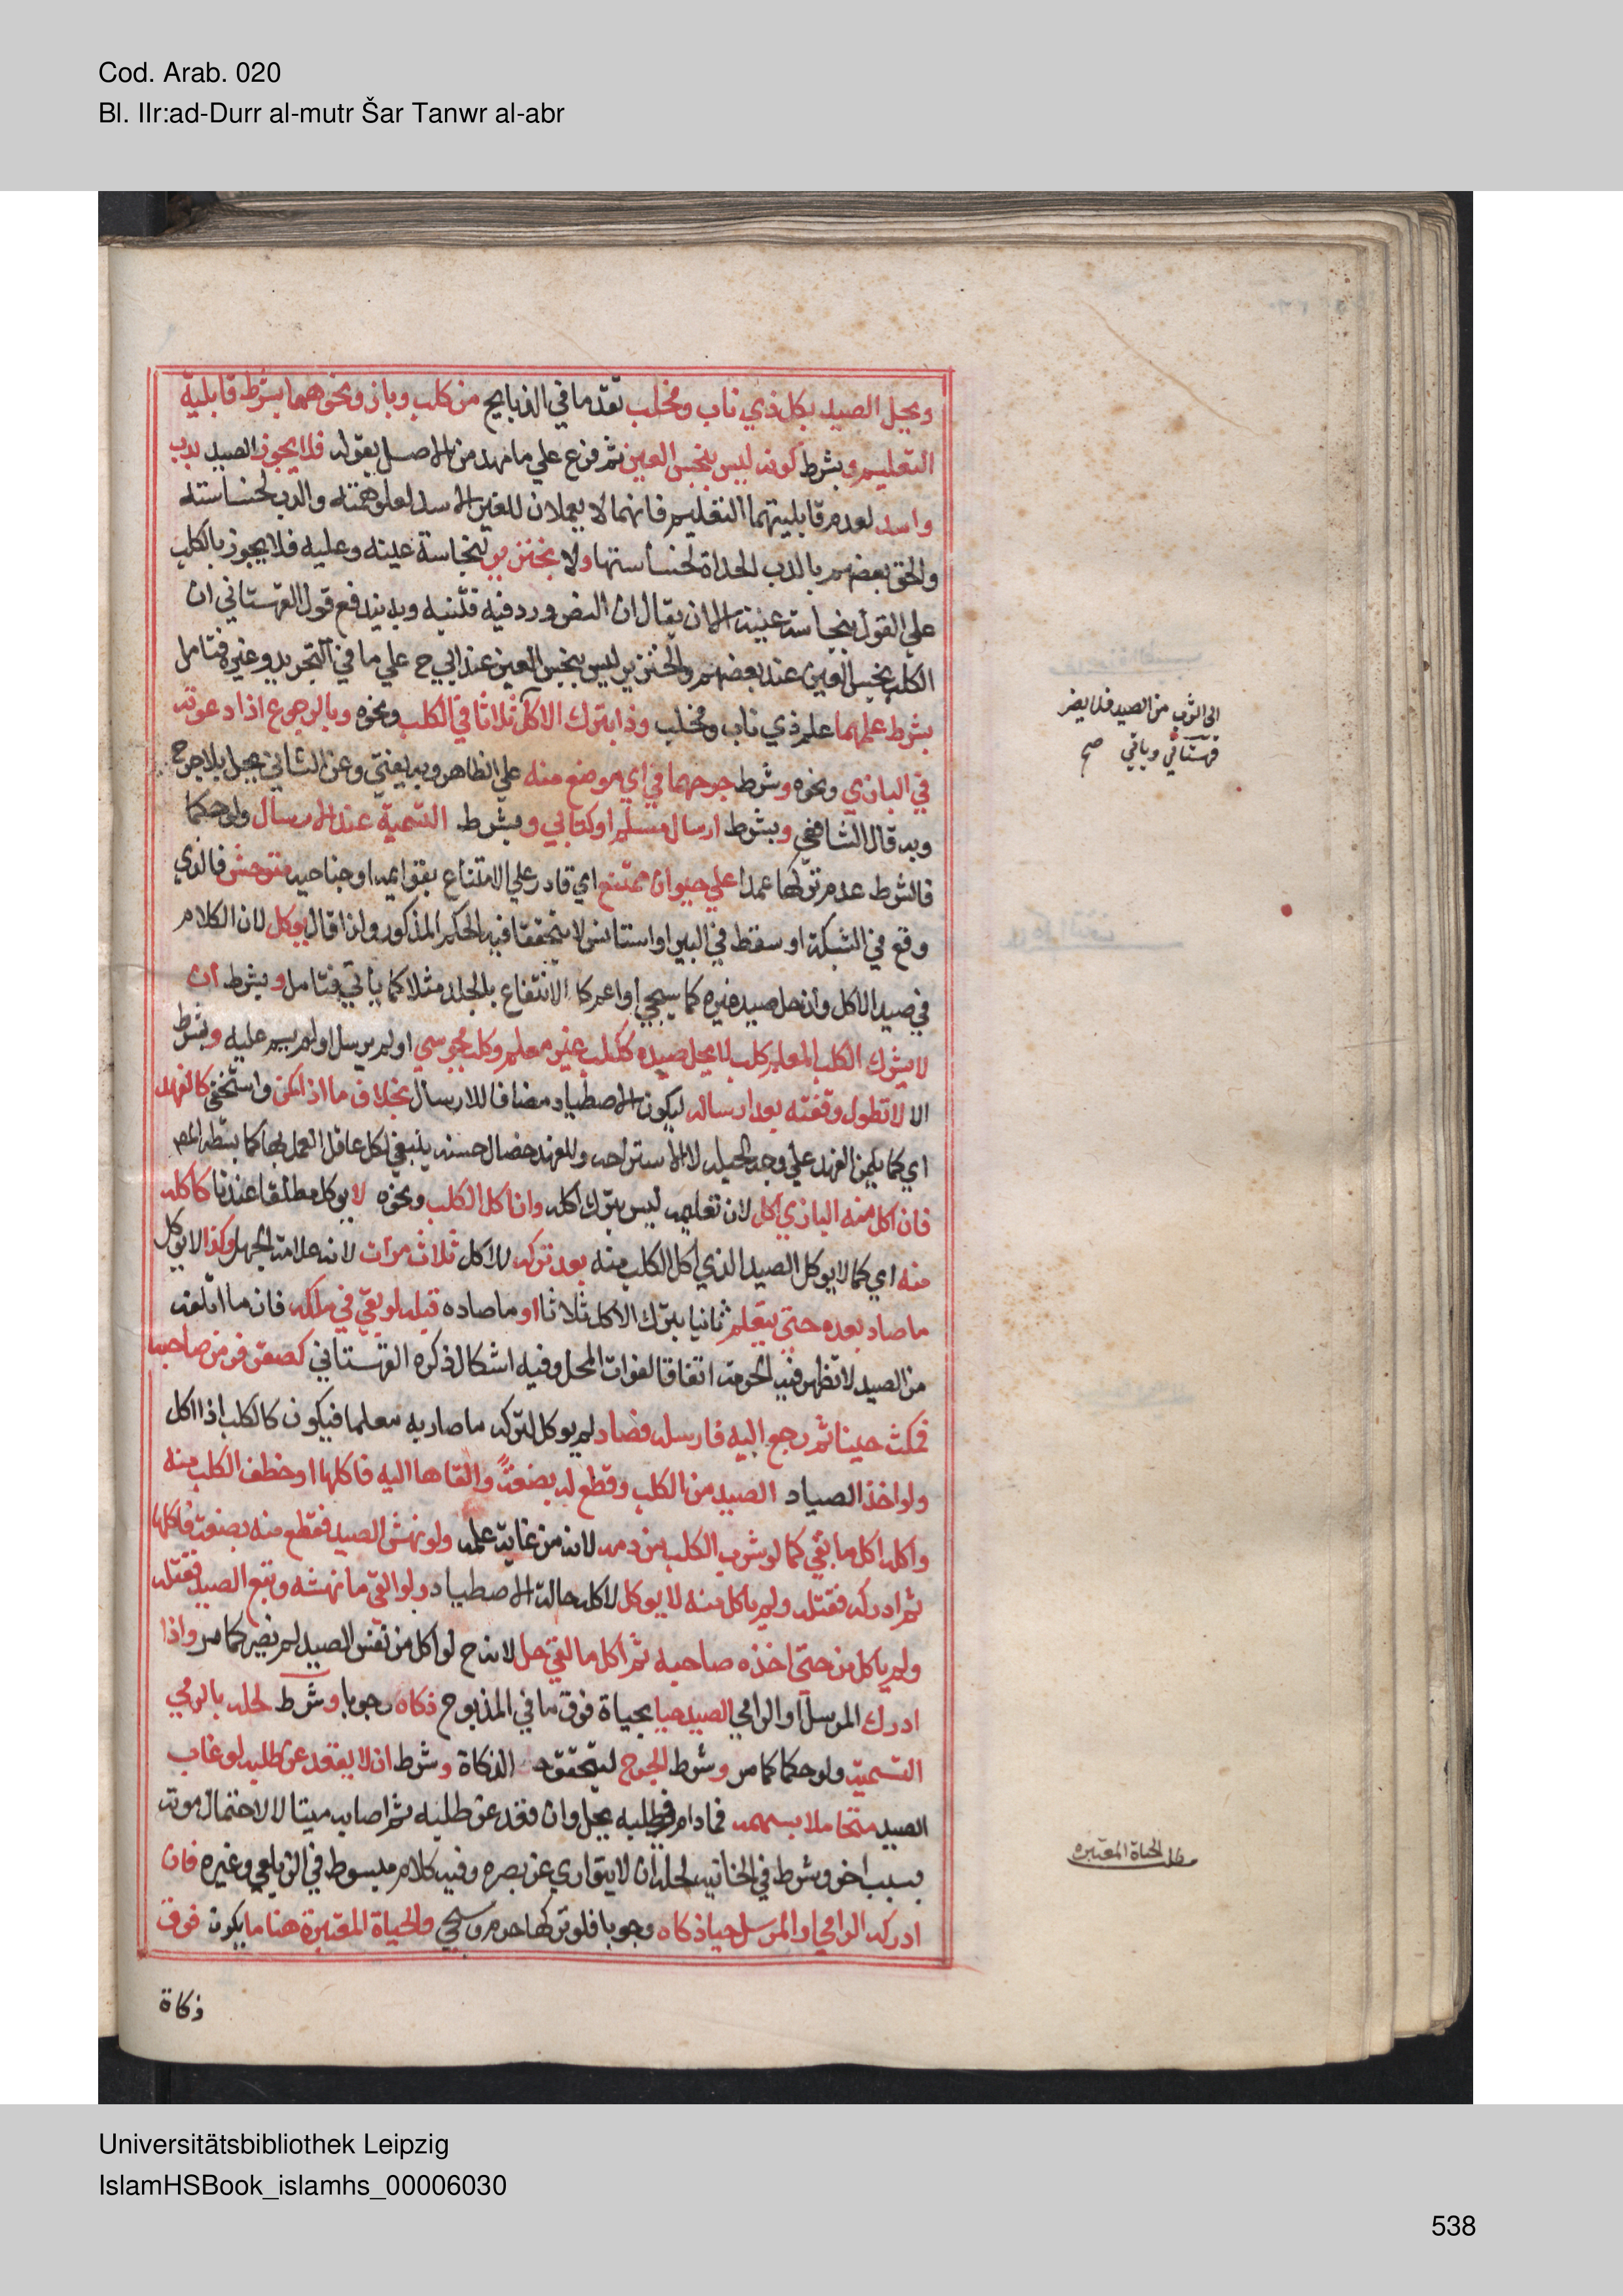 Cod. Arab. 020
Bl. IIr:ad-Durr al-mutr Šar Tanwr al-abr
ويحل الصيد بكل ذي ناب ومخلب تقدما في الذبايح من كلب وباز ونحوهما بشرط قابلية
التعليم وبشرط كونه ليس بنجس العين ثم فرع علي ما مهد من الاصل بقوله فلا يجوز الصيد بدب
واسد لعدم قابليتهما التعليم فانهما لا يعملان للغير الاسد لعلو همته والدب لخساسته
والحق بعضهم بالدب الحداة لخساستها ولا بخنزير لنجاسة عينه وعليه فلا يجوز بالكلب
علي القول بنجاسة عينه الا ان يقال ان النص ورد فيه فتنبه وبه يندفع قول القهستاني ان
الكلب نجس العين عند بعضهم والخنزير ليس بنجس العين عند ابي ح علي ما في التجريد وغيره فتامل
بشرط علمهما علم ذي ناب ومخلب وذا بترك الاكل ثلاثا في الكلب ونحوه وبالرجوع اذا دعوته
في البازي ونحوه وشرط جرحهما في اي موضع منه علي الظاهر وبه يفتي وعن الثاني يحل بلا جرح
وبه قال الشافعي وبشرط ارسال مسلم او كتابي وبشرط التسمية عند الارسال ولو حكما
فالشرط عدم تركها عمدا علي حيوان ممتنع اي قادر علي الامتناع بقوايمه او جناحيه متوحش فالذي
وقع في الشبكة او سقط في البير او استانس لا يتحقق فيه الحكم المذكور ولذا قال يوكل لان الكلام
في صيد الاكل وان حل صيد غيره كما سيجي او اعم كالانتفاع بالجلد مثلا كما ياتي فتامل وبشرط ان
لا يشرك الكلب المعلم كلب لا يحل صيده ككلب غير معلم وكلب مجوسي او لم يرسل او لم يسم عليه وبشرط
الا لا تطول وقفته بعد ارساله ليكون الاصطياد مضافا للارسال بخلاف ما اذا كمن واستخفي كالفهد
اي كما يكمن الفهد علي وجه الحيلة لا الاستراحه وللفهد خصال حسنه ينبغي لكل عاقل العمل بها كما بسطه المص
فان اكل منه البازي اكل لان تعليمه ليس بترك اكله وان اكل الكلب ونحوه لا يوكل مطلقا عندنا كاكله
منه اي كما لا يوكل الصيد الذي اكل الكلب منه بعد تركه للاكل ثلاث مرات لانه علامة الجهل وكذا لا يوكل
ما صاد بعده حتي يتعلم ثانيا بترك الاكل ثلاثا او ما صاده قبله لو بقي في ملكه فان ما اتلفه
من الصيد لا تظهر فيه الحرمة اتفاقا لفوات المحل وفيه اشكال ذكره القهستاني كصقر فر من صاحبه
فمكث حينا ثم رجع اليه فارسله فصاد لم يوكل لتركه ما صار به معلما فيكون كالكلب اذا اكل
ولو اخذ الصياد الصيد من الكلب وقطع له بضعة والقاها اليه فاكلها او خطف الكلب منه
واكله اكل ما بقي كما لو شرب الكلب من دمه لانه من غاية علمه ولو نهش الصيد فقطع منه بضعة فاكلها
ثم ادركه فقتله ولم ياكل منه لا يوكل لاكله حالة الاصطياد ولو القي ما نهشه وتبع الصيد فقتله
ولم ياكل من حتي اخذه صاحبه ثم اكل ما القي حل لانه ح لو اكل من نفس الصيد لم يضر كما مر واذا
ادرك المرسل او الرامي الصيد حيا بحياة فوق ما في المذبوح ذكاه وجوبا وشرط لحله بالرمي
التسمية ولو حكما كما مر وشرط الجرح ليتحقق الذكاة وشرط ان لا يقعد عن طلبه لو غاب
الصيد متحاملا بسهمه فما دام في طلبه يحل وان قعد عن طلبه ثم اصابه ميتا لا لاحتمال موته
بسبب اخر وشرط في الخانية لحله ان لا يتواري عن بصره وفيه كلام مبسوط في الزيلعي وغيره فان
ادركه الرامي او المرسل حيا ذكاه وجوبا فلو تركها حرم وسيجي والحياة المعتبرة هنا ما يكون فوق
ذكاة
قهستاني وباقي صح
مطلب الحياة المعتبره
Universitätsbibliothek Leipzig
IslamHSBook_islamhs_00006030
538